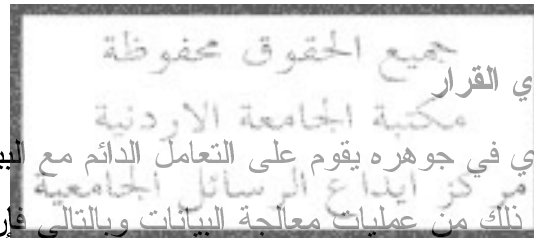 جميع الحقوق محفوظة
ي القرار
مكتبة الجامعة الاردنية
ي في جوهره يقوم على التعامل الدائم مع
مركز ايداع الرسائل الجامعية
ذلك من عمليات معالجة البيانات وبالتالي فإن